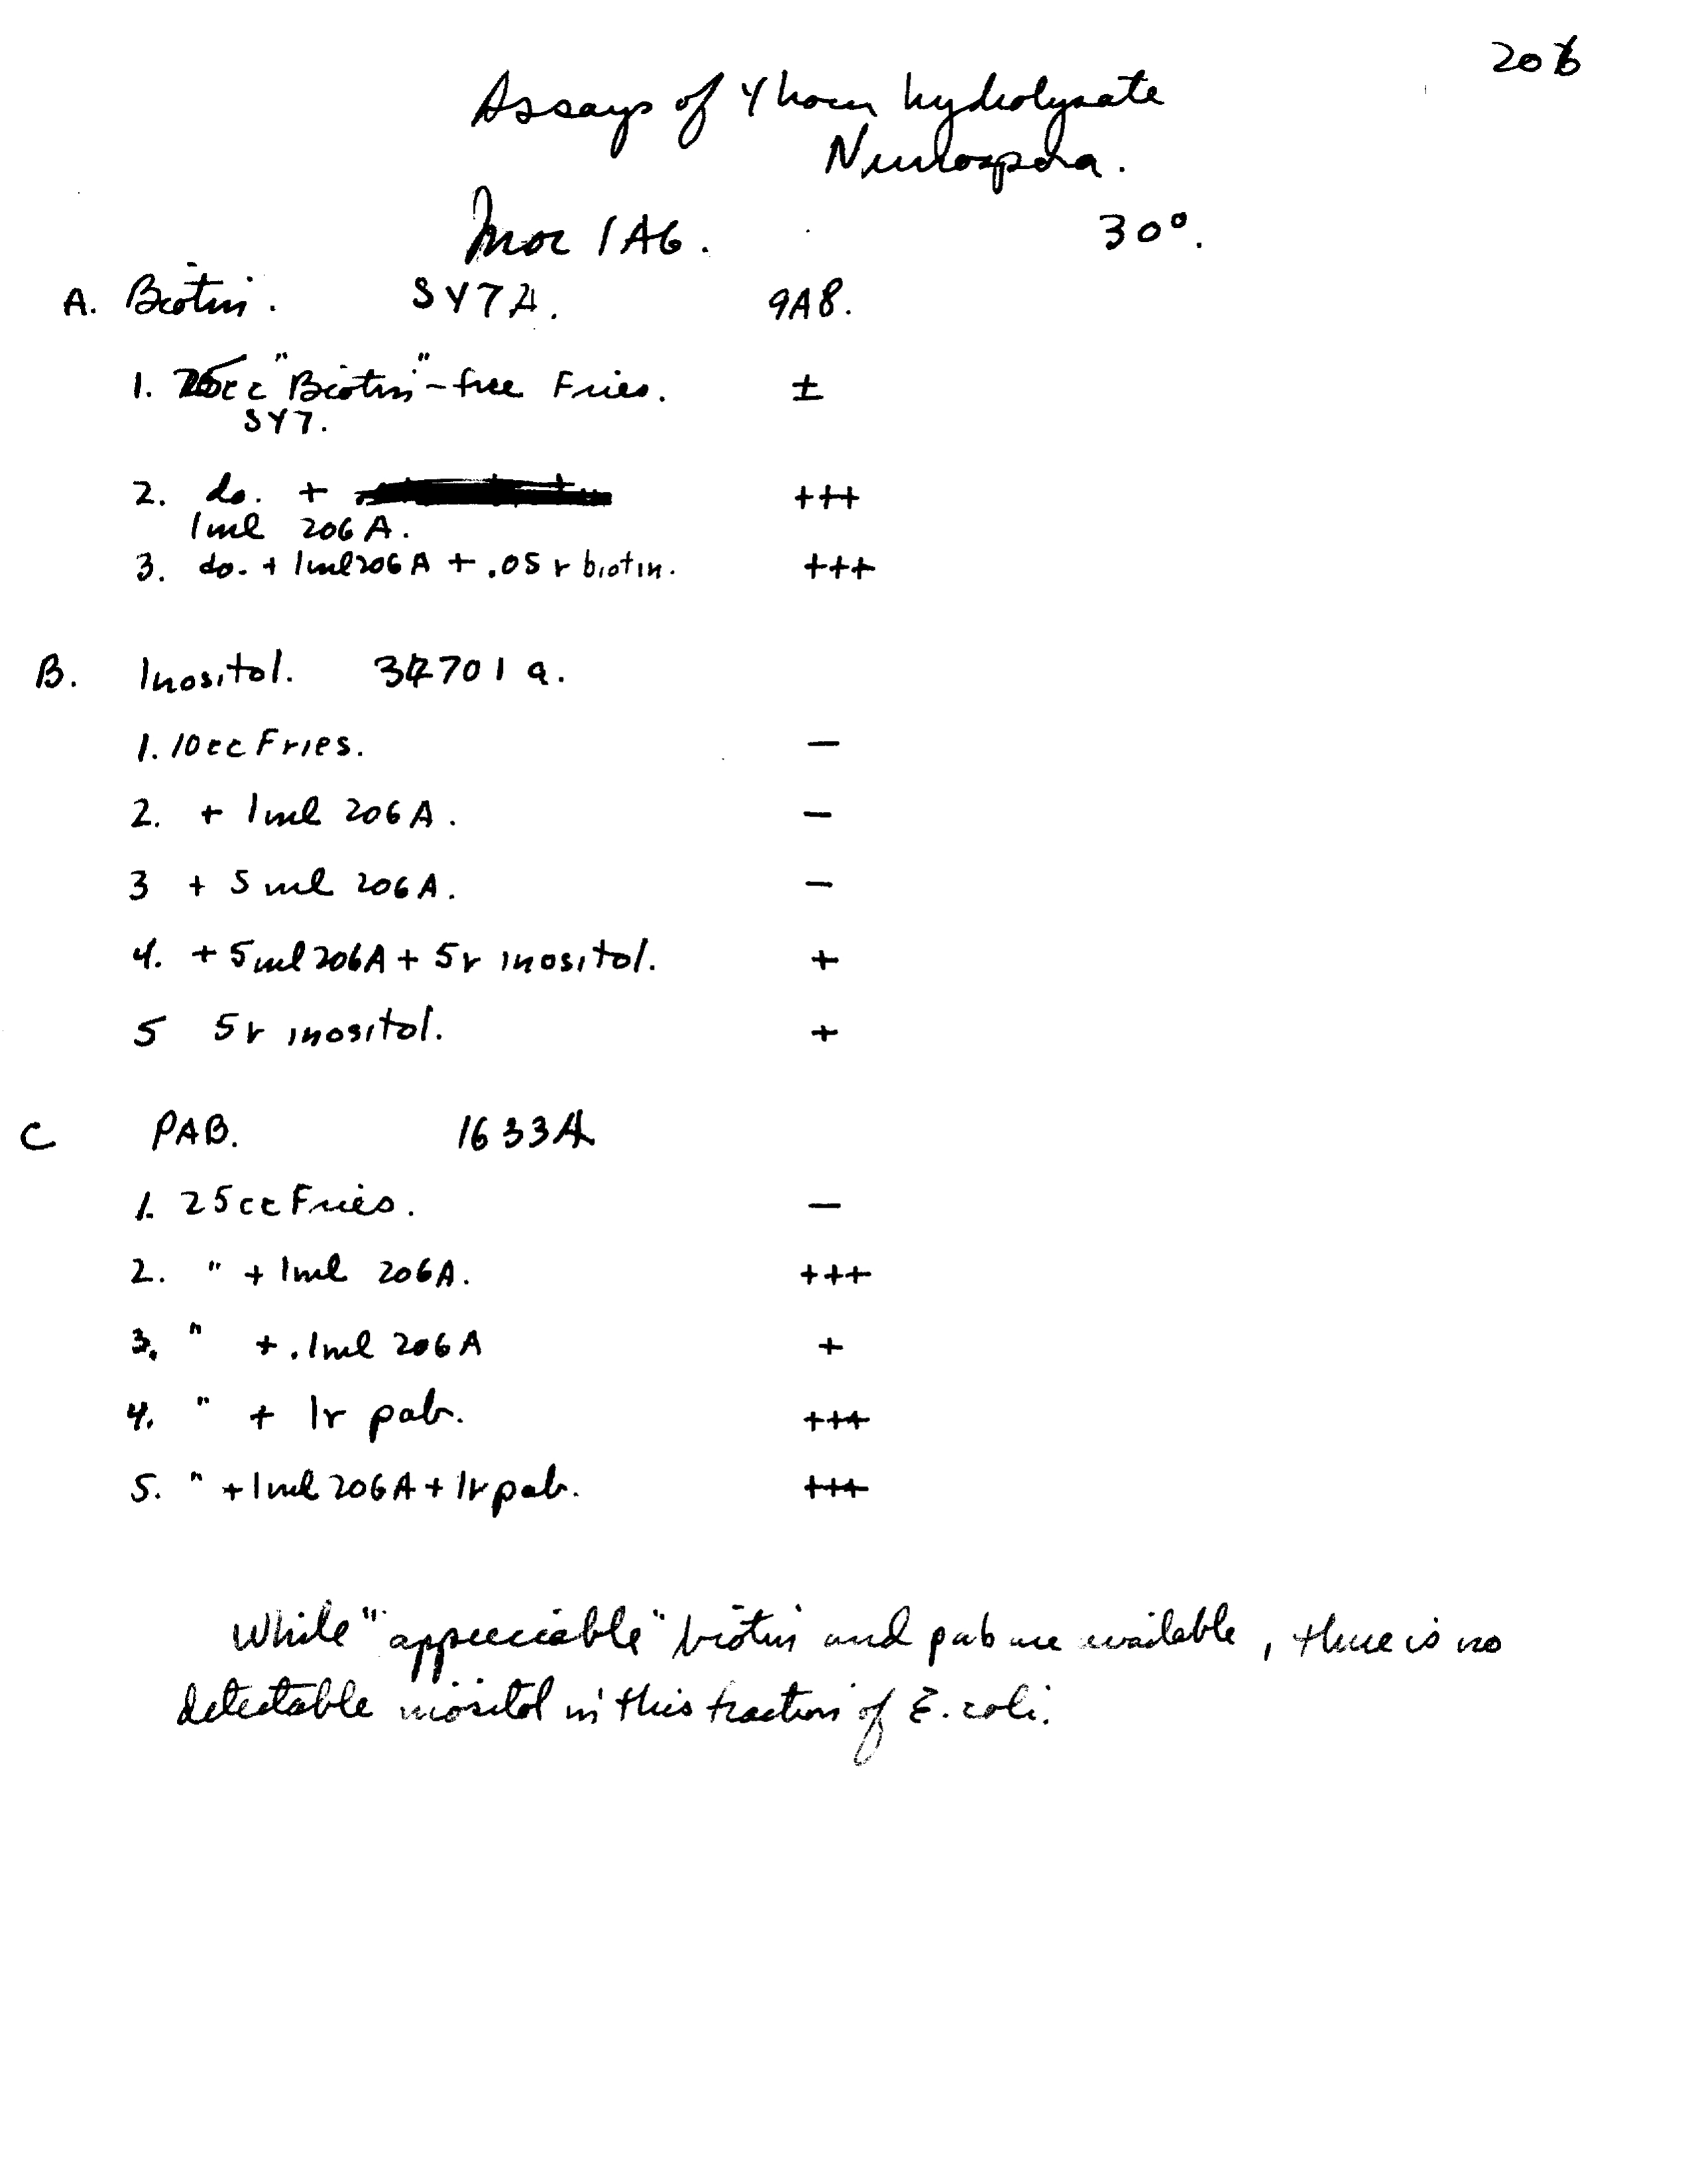 206
Assays of 4 hour hydrolysate
Neurospora.
Inoc 1A6. 30°.
A. Biotin. SY7A. 9A8.
1. 25cc "Biotin"-free Fries. ±
SY7.
2. do. + +++
1ml 206A.
3. do. + 1ml 206A + .05 r biotin. +++
B. Inositol. 37701 a.
1. 10cc Fries. —
2. + 1ml 206A. —
3 + 5ml 206A. —
4. + 5ml 206A + 5r inositol. +
5 5r inositol. +
C PAB. 1633A
1. 25cc Fries. —
2. " + 1ml 206A. +++
3. " + .1ml 206A +
4. " + 1r pab. +++
5. " + 1ml 206A + 1r pab. +++
While "appreciable" biotin and pab are available, there is no
detectable inositol in this fraction of E. coli.